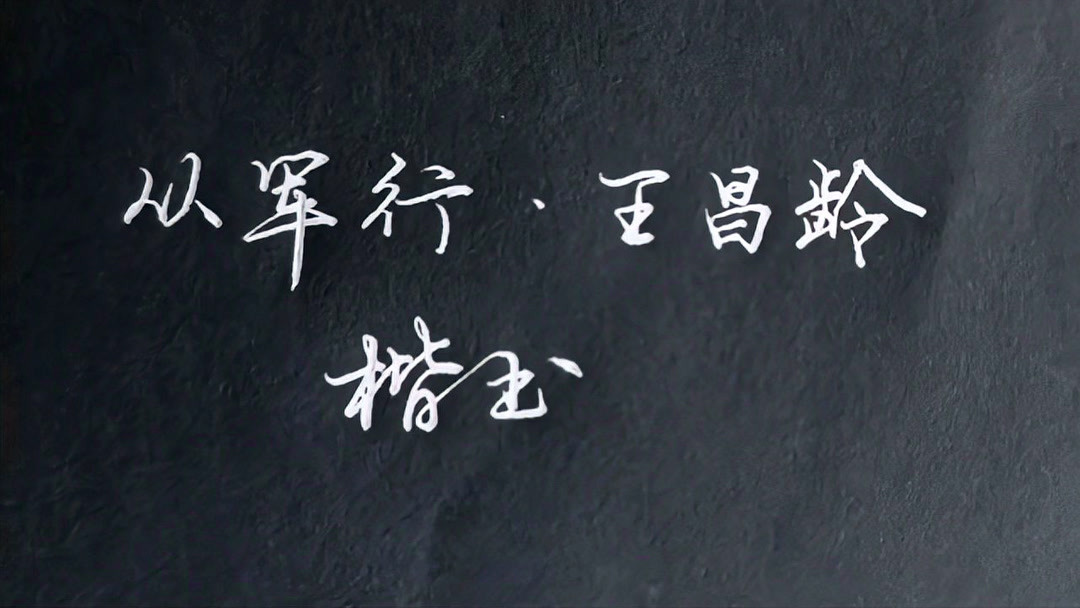 从军行·王昌龄
楷书